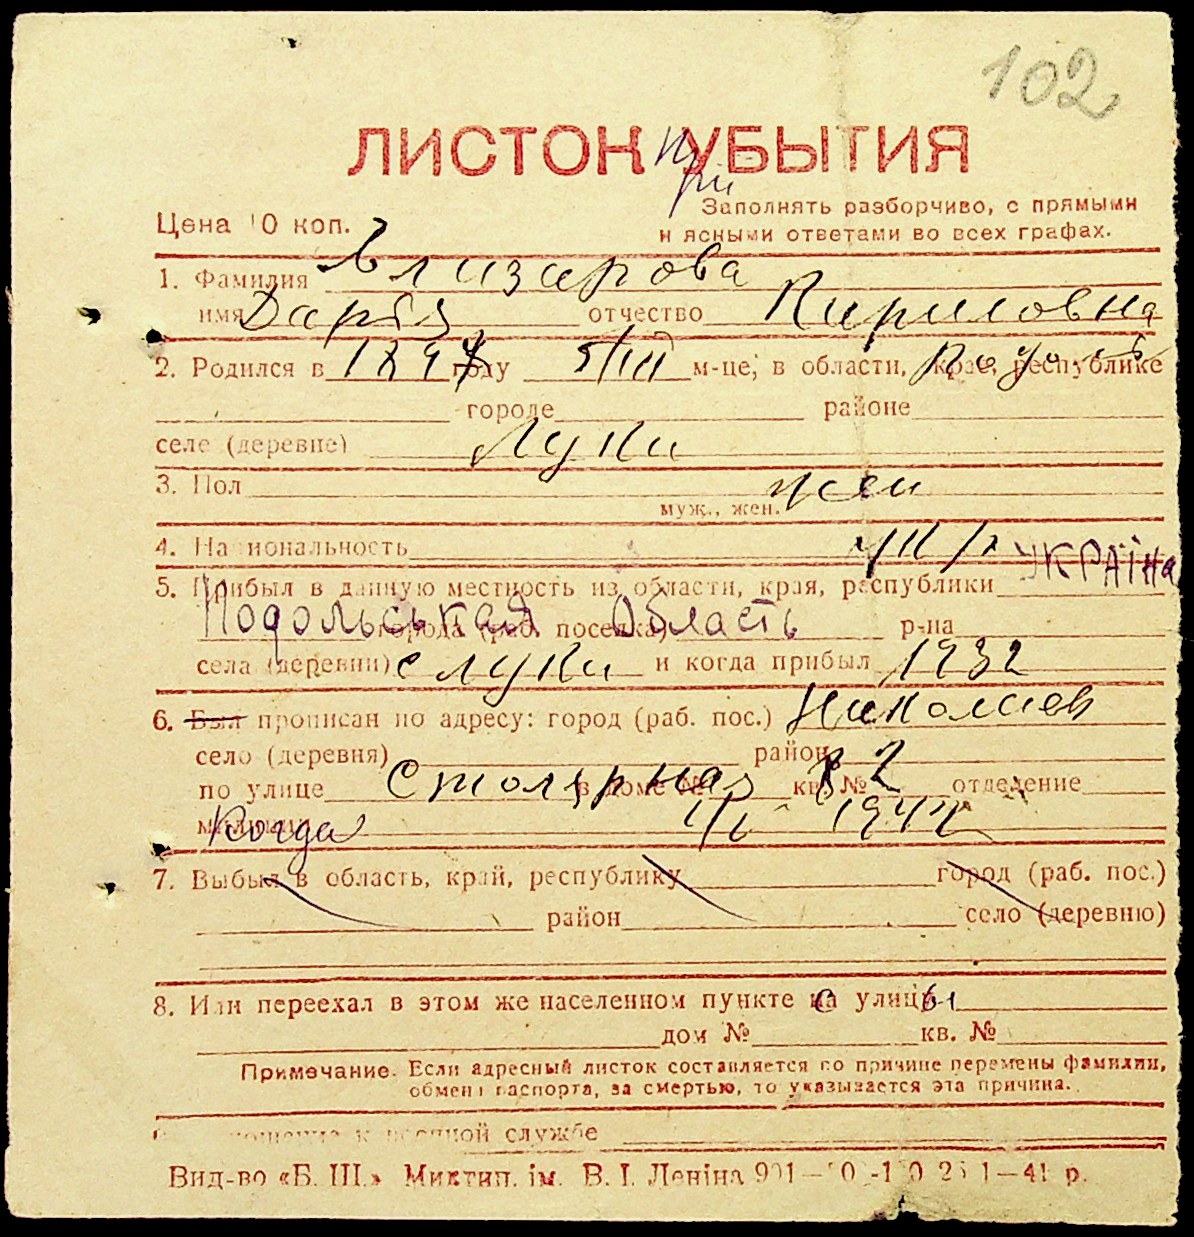 102
ЛИСТОК УБЫТИЯ
при
Заполнять разборчиво, с прямыми
Цена 10 коп.
и ясными ответами во всех графах.
1. Фамилия Елизарова
имя Дарья отчество Кириловна
2. Родился в 1897 году 5/III м-це, в области, крае, республике
городе районе
селе (деревне) Луки
3. Пол жен
муж., жен.
4. Национальность укр
5. Прибыл в данную местность из области, края, республики УКРАїна
Подольськая Область города (раб. поселка) р-на
села (деревни) с Луки и когда прибыл 1932
6. Был прописан по адресу: город (раб. пос.) Николаев
село (деревня) район
по улице Столярная в доме № кв. № 2 отделение
милиции Когда 1944
7. Выбыл в область, край, республику город (раб. пос.)
район село (деревню)
8. Или переехал в этом же населенном пункте с улицы
дом № кв. №
Примечание. Если адресный листок составляется по причине перемены фамилии,
обмена паспорта, за смертью, то указывается эта причина.
отношение к военной службе
Вид-во «Б. Ш.» Миктип. ім. В. І. Леніна